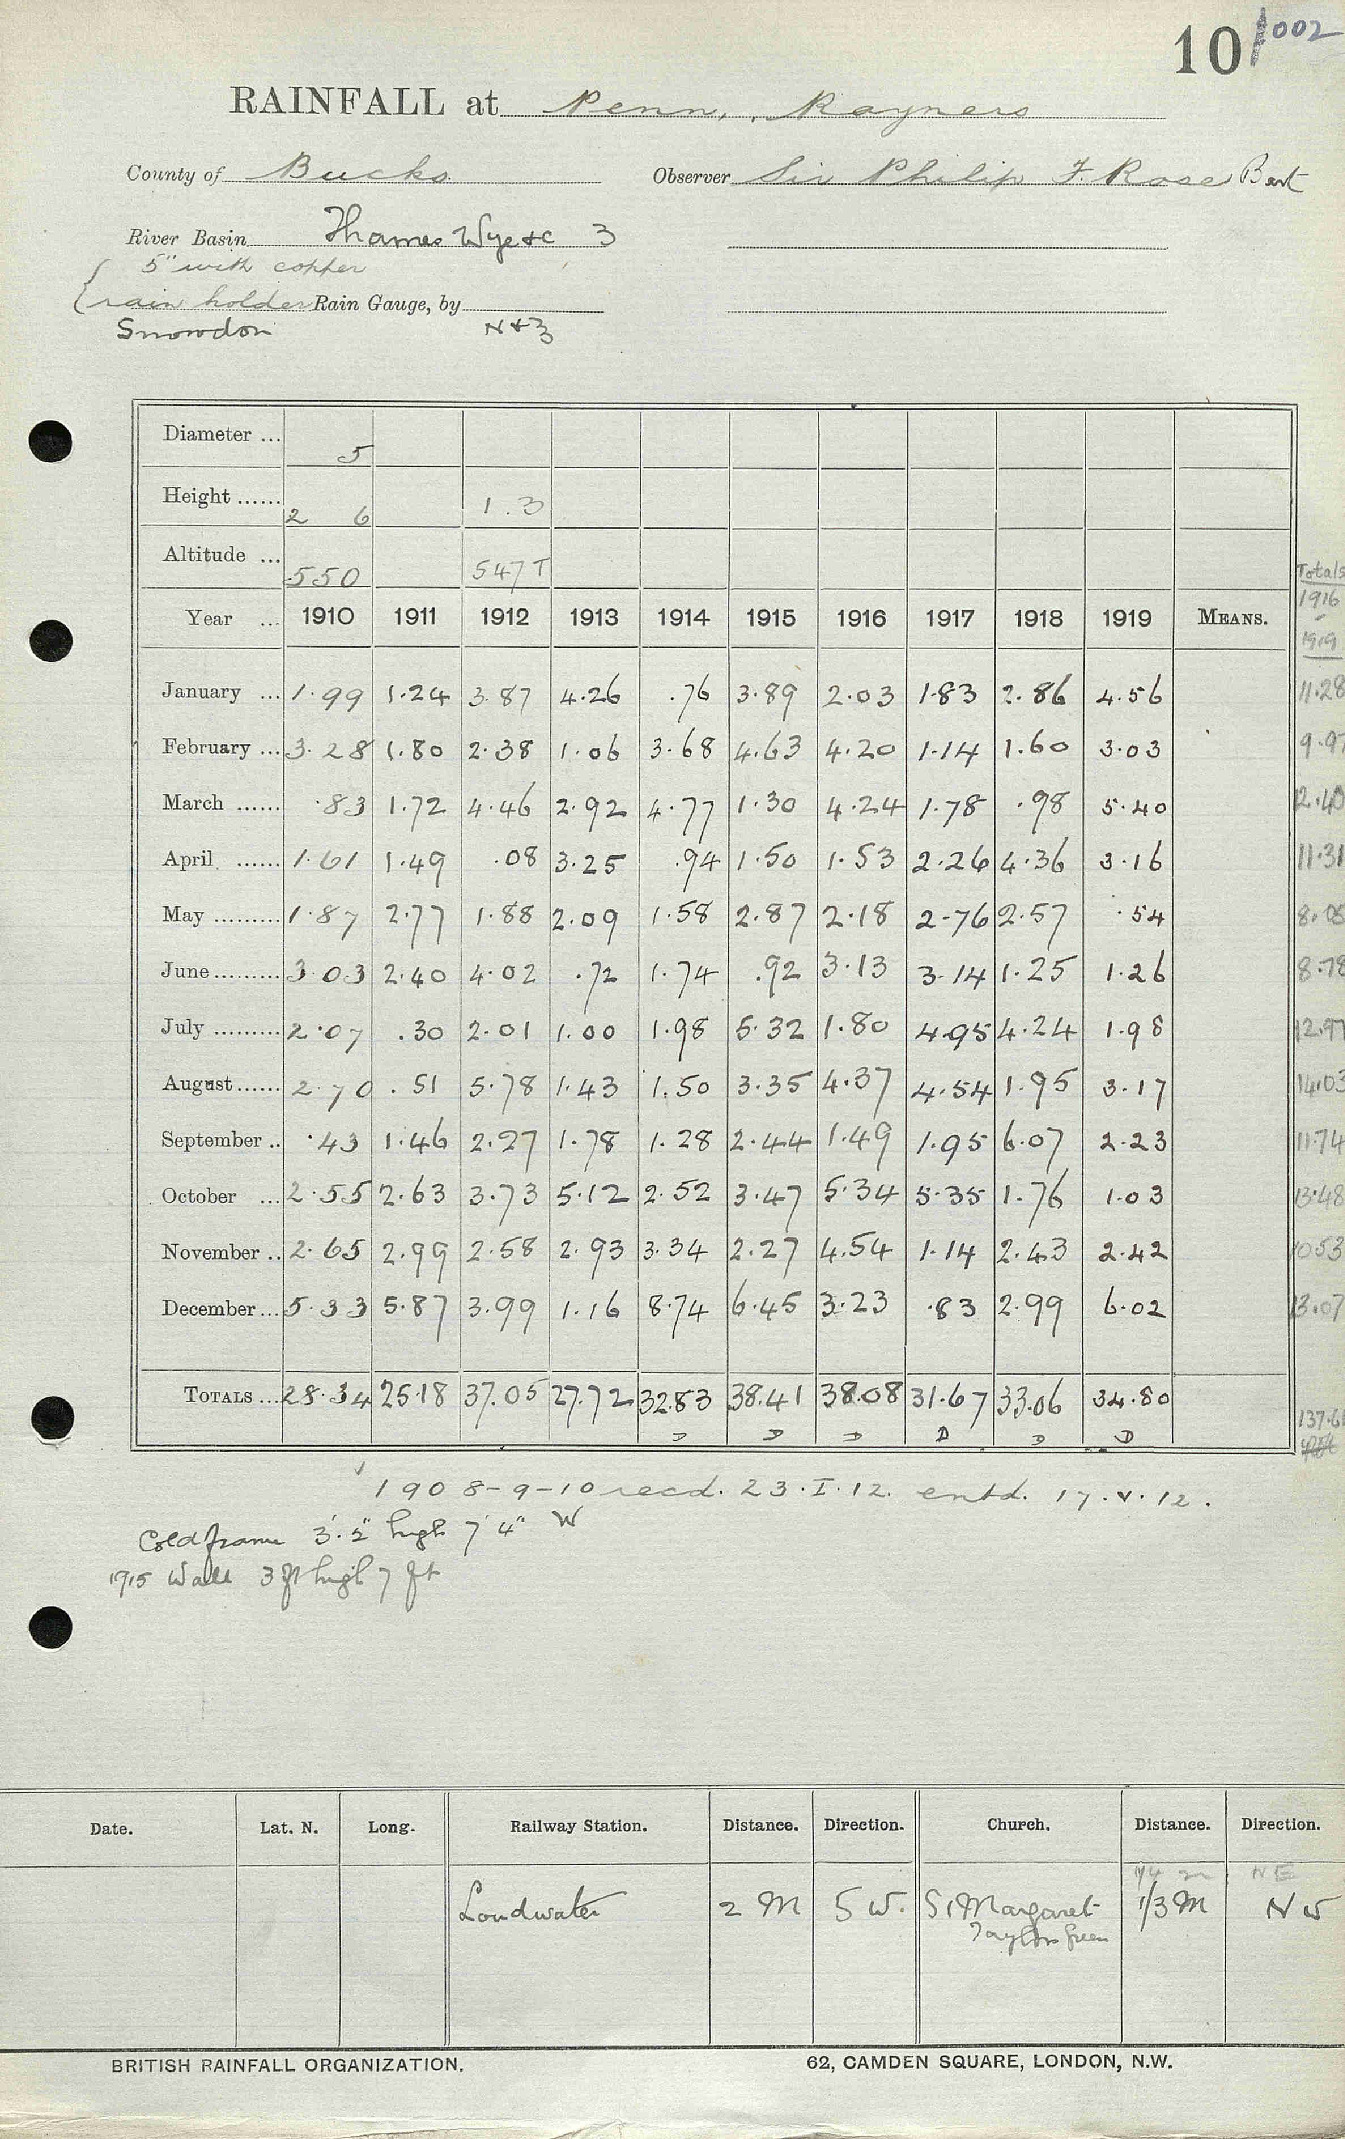 10 1002
RAINFALL at Penn, Rayners
County of Bucks Observer Sir Philip F. Rose Bart
River Basin Thames Wye &c 3
5" with copper
rain holder Rain Gauge, by
Snowdon N & Z
Diameter ... 5
Height ...... 2 6 1.3
Altitude ... 550 547 T
Totals
Year ... 1910 1911 1912 1913 1914 1915 1916 1917 1918 1919 MEANS. 1916 - 1919
January ... 1.99 1.24 3.87 4.26 .76 3.89 2.03 1.83 2.86 4.56 11.28
February ... 3.28 1.80 2.38 1.06 3.68 4.63 4.20 1.14 1.60 3.03 9.97
March ...... .83 1.72 4.46 2.92 4.77 1.30 4.24 1.78 .98 5.40 12.40
April ...... 1.61 1.49 .08 3.25 .94 1.50 1.53 2.26 4.36 3.16 11.31
May ......... 1.87 2.77 1.88 2.09 1.58 2.87 2.18 2.76 2.57 .54 8.05
June ......... 3.03 2.40 4.02 .72 1.74 .92 3.13 3.14 1.25 1.26 8.78
July ......... 2.07 .30 2.01 1.00 1.98 5.32 1.80 4.95 4.24 1.98 12.97
August ...... 2.70 .51 5.78 1.43 1.50 3.35 4.37 4.54 1.95 3.17 14.03
September .. .43 1.46 2.27 1.78 1.28 2.44 1.49 1.95 6.07 2.23 11.74
October ... 2.55 2.63 3.73 5.12 2.52 3.47 5.34 5.35 1.76 1.03 13.48
November .. 2.65 2.99 2.58 2.93 3.34 2.27 4.54 1.14 2.43 2.42 10.53
December ... 5.33 5.87 3.99 1.16 8.74 6.45 3.23 .83 2.99 6.02 13.07
TOTALS ... 28.34 25.18 37.05 27.72 32.83 38.41 38.08 31.67 33.06 34.80 137.61
D D D D D D
1908-9-10 recd. 23.I.12. entd. 17.V.12.
Cold frame 3'.5" high 7'4" W
1915 Wall 3 ft high 7 ft
Date. Lat. N. Long. Railway Station. Distance. Direction. Church. Distance. Direction.
1/4 m NE
Loudwater 2 M S W. St Margaret 1/3 M N W
Taylors Green
BRITISH RAINFALL ORGANIZATION. 62, CAMDEN SQUARE, LONDON, N.W.